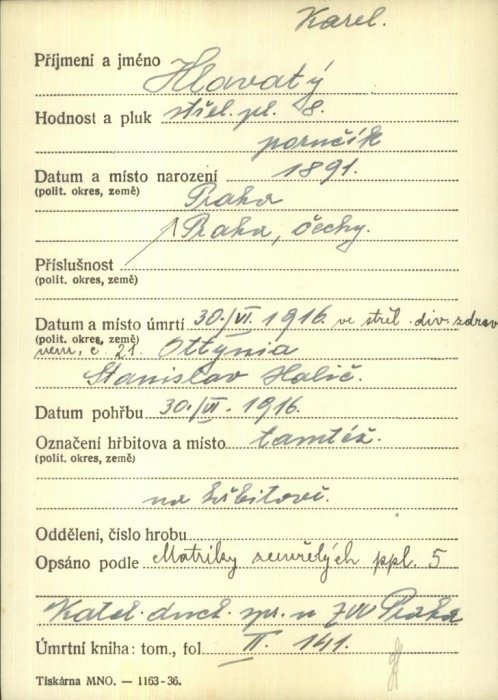 Karel.
Příjmení a jméno Hlavatý
Hodnost a pluk střel. pl. 8.
poručík
Datum a místo narození 1891.
(polit. okres, země)
Praha
Praha, Čechy.
Příslušnost
(polit. okres, země)
Datum a místo úmrtí 30./VI. 1916. ve střel. div. zdrav
(polit. okres, země)
nem. č. 21. Ottynia
Stanislav Halič.
Datum pohřbu 30./VI. 1916.
Označení hřbitova a místo tamtéž.
(polit. okres, země)
na hřbitově.
Oddělení, číslo hrobu
Opsáno podle Matriky zemřelých ppl. 5
Katol. duch. spr. u ZVV Praha
Úmrtní kniha: tom., fol II. 141.
Tiskárna MNO. — 1163-36.